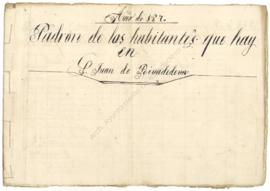 Año de 187.
Padron de los habitantes que hay
en
S. Juan de Rivadedeva